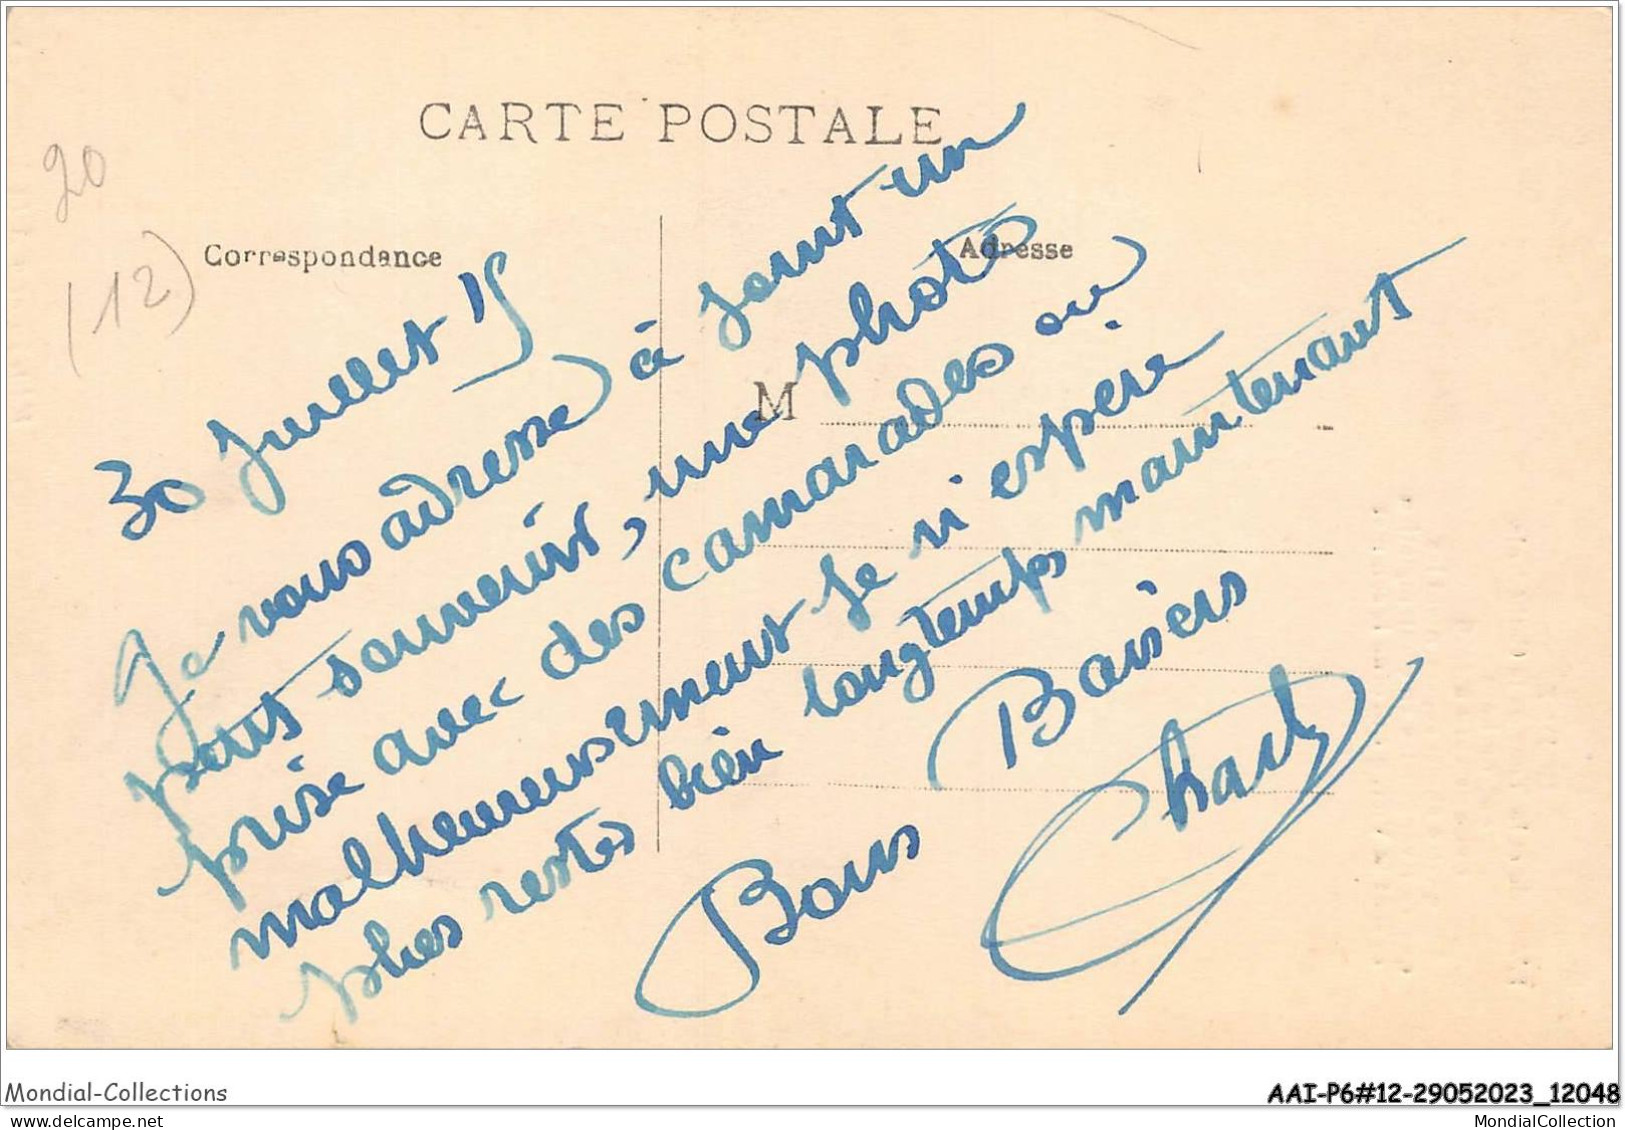 CARTE POSTALE
20
(12)
Correspondance
Adresse
M
30 Juillet 15
Je vous adresse à joint un
petit souvenir, une photo
prise avec des camarades ou
malheureusement je n'espère
plus restes bien longtemps maintenant
Bons Baisers
Charly
Mondial-Collections
AAI-P6#12-29052023_12048
www.delcampe.net
MondialCollection